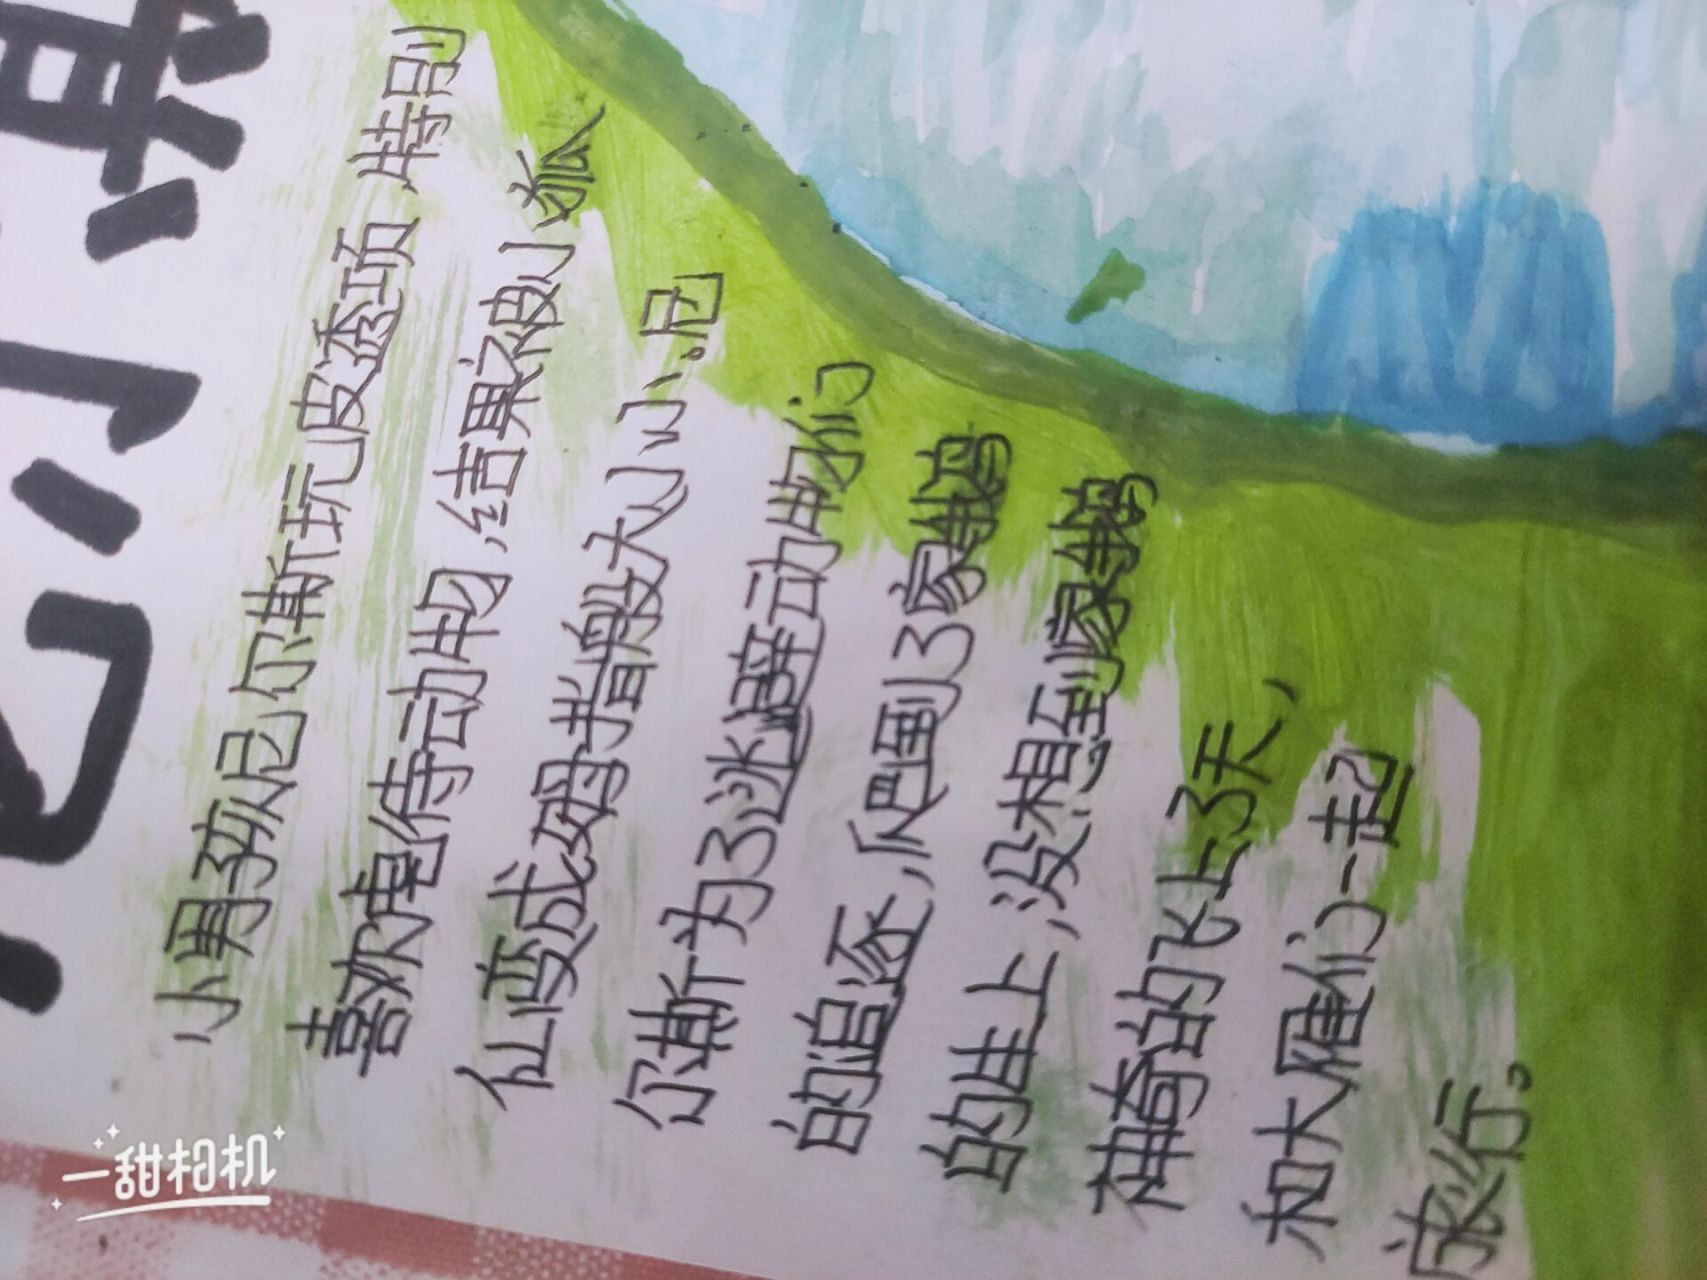 小男孩尼尔斯玩皮透项 特别
喜欢虐待动物,结果被小狐
仙变成拇指般大小。尼
尔斯为了逃避动物们
的追逐,爬到了家鹅
的生上,没想到家鹅
神奇的飞上了天,
和大雁们一起
旅行。
一甜相机